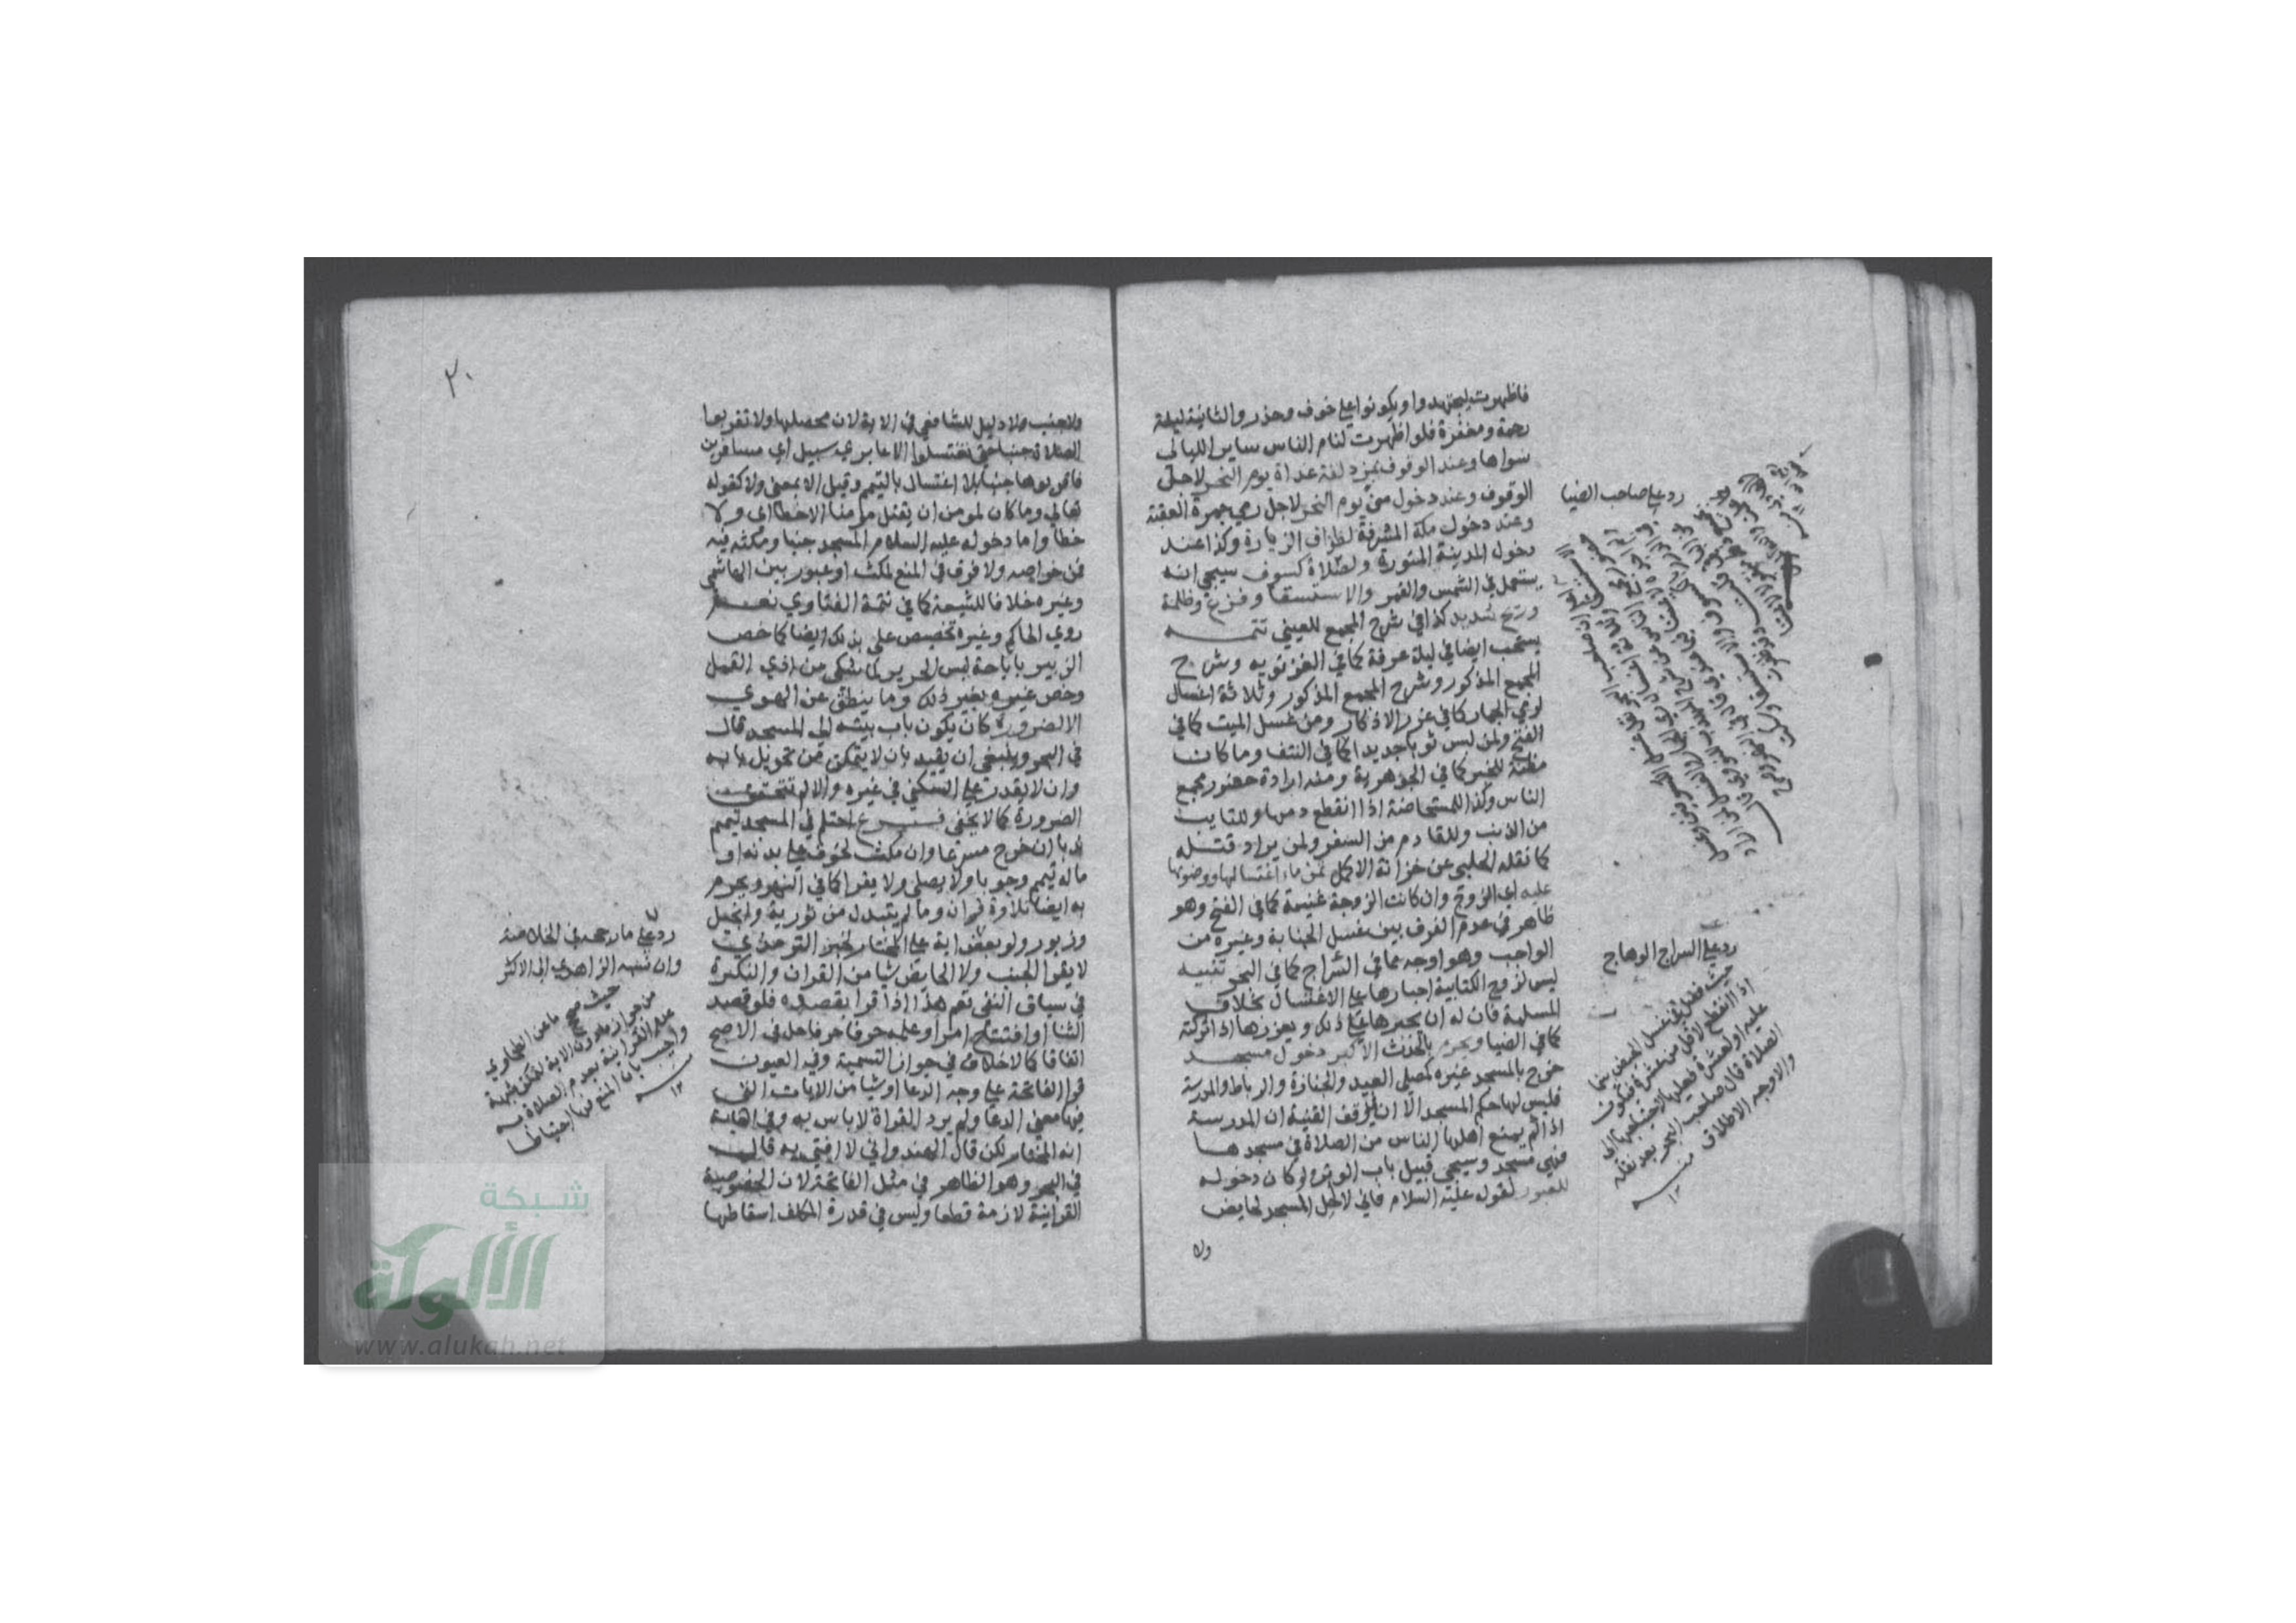 فاظهرت ليجتهدوا ويكونوا على خوف وحذر والثانية ليلة
رحمة ومغفرة فلو اظهرت لنام الناس ساير الليالي
سواها وعند الوقوف بمزدلفة غداة يوم النحر لاجل
الوقوف وعند دخول منى يوم النحر لاجل رمي جمرة العقبة
وعند دخول مكة المشرفة لطواف الزيارة وكذا عند
دخول المدينة المنورة ولصلاة كسوف سيجي انه
يستعمل في الشمس والقمر والاستسقا وفزع وظلمة
وريح شديد كذا في شرح المجمع للعيني تتمــه
يستحب ايضا في ليلة عرفة كما في الغزنويه وشرح
المجمع المذكور وشرح المجمع المذكور وثلاثة اغسال
لرمي الجمار كما في غرر الاذكار ومن غسل الميت كما في
الفتح ولمن لبس ثوبا جديدا كما في النتف وما كان
مظنة للخير كما في الجوهرية ومنه ارادة حضور مجمع
الناس وكذا للمستحاضة اذا انقطع دمها وللتايب
من الذنب وللقادم من السفر ولمن يراد قتله
كما نقله الحلبي عن خزانة الاكمل ثمن ماء اغتسالها ووضوئها
عليه اي الزوج وان كانت الزوجة غنية كما في الفتح وهو
ظاهر في عدم الفرق بين غسل الجنابة وغيره من
الواجب وهو اوجه مما في السراج كما في البحر تنبيه
ليس لزوج الكتابية اجبارها على الاغتسال بخلاف
المسلمة فان له ان يجبرها على ذلك ويعزرها اذا تركته
كما في الضيا ويحرم بالحدث الاكبر دخول مسجد
خرج بالمسجد غيره كمصلى العيد والجنازة والرباط والمدرسة
فليس لها حكم المسجد الا ان في وقف القنية ان المدرسة
اذا لم يمنع اهلها الناس من الصلاة في مسجدها
فهي مسجد وسيجي قبيل باب الوتر ولو كان دخوله
للعبور لقوله عليه السلام فاني لا احل المسجد لحايض
ولا
رد على صاحب الضيا
رد على السراج الوهاج
حيث فصل في غسل الحيض بينما
اذا انقطع لاقل من عشرة فتكون
عليه او لعشرة فعليها لاحتياجها الى
الصلاة قال صاحب البحر بعد نقله
والاوجه الاطلاق منــه
١٢
٢٠
ولا جنب ولا دليل للشافعي في الاية لان محصلها ولا تقربوا
الصلاة جنبا حتى تغتسلوا الا عابري سبيل اي مسافرين
فاقربوها جنبا بلا اغتسال بالتيمم وقيل الا بمعنى ولا كقوله
تعالى وما كان لمومن ان يقتل مومنا الا خطا اي ولا
خطا واما دخوله عليه السلام المسجد جنبا ومكثه فيه
فمن خواصه ولا فرق في المنع لمكث او عبور بين الهاشمي
وغيره خلافا للشيعة كما في تتمة الفتاوي نعــم
روي الحاكم وغيره تخصيص علي بذلك ايضا كما خص
الزبير باباحة لبس الحرير لما شكى من اذي القمل
وخص غيره بغير ذلك وما ينطق عن الهوي
الا لضرورة كان يكون باب بيته الى المسجد قال
في البحر وينبغي ان يقيد بان لا يتمكن من تحويل بابه
وان لا يقدر على السكني في غيره والا لم تتحقق
الضرورة كما لا يخفى فــرع احتلم في المسجد تيمم
ندبا ان خرج مسرعا وان مكث لخوف على بدنه او
ماله تيمم وجوبا ولا يصلي ولا يقرا كما في النهر ويحرم
به ايضا تلاوة قران وما لم يتبدل من تورية وانجيل
وزبور ولو بعض اية على المختار لخبر الترمذي
لا يقرا الجنب ولا الحايض شيا من القران والنكرة
في سياق النفي تعم هذا اذا قرا بقصده فلو قصد
الثنا او افتتاح امر او علمه حرفا حرفا حل في الاصح
اتفاقا كالاخلاف في جواز التسمية وفي العيون
قرا الفاتحة على وجه الدعا او شيا من الايات التي
فيها معنى الدعا ولم يرد القراة لا باس به وفي الغاية
انه المختار لكن قال الهندواني لا افتي به قال
في البحر وهو الظاهر في مثل الفاتحة لان الخصوصية
القرانية لازمة قطعا وليس في قدرة المكلف اسقاطها
رد على ما رجحه في الخلاصة
وان نسبه الزاهدي الى الاكثر
حيث صحح ما عن الطحاوي
من جواز ما دون الاية لتمكن شبهة
عدم القرانية بعدم الصلاة به
واجيب بان المنع هنا احتياطا
منــه
١٢
شبكة
الألوكة
www.alukah.net